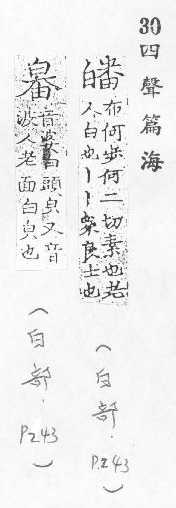 30 四聲篇海
皤 布何步何二切素也老
人白也丨丨衆良士也
(白部. P.243)
音頭皃又音
波人老面白皃也
(白部. P243)